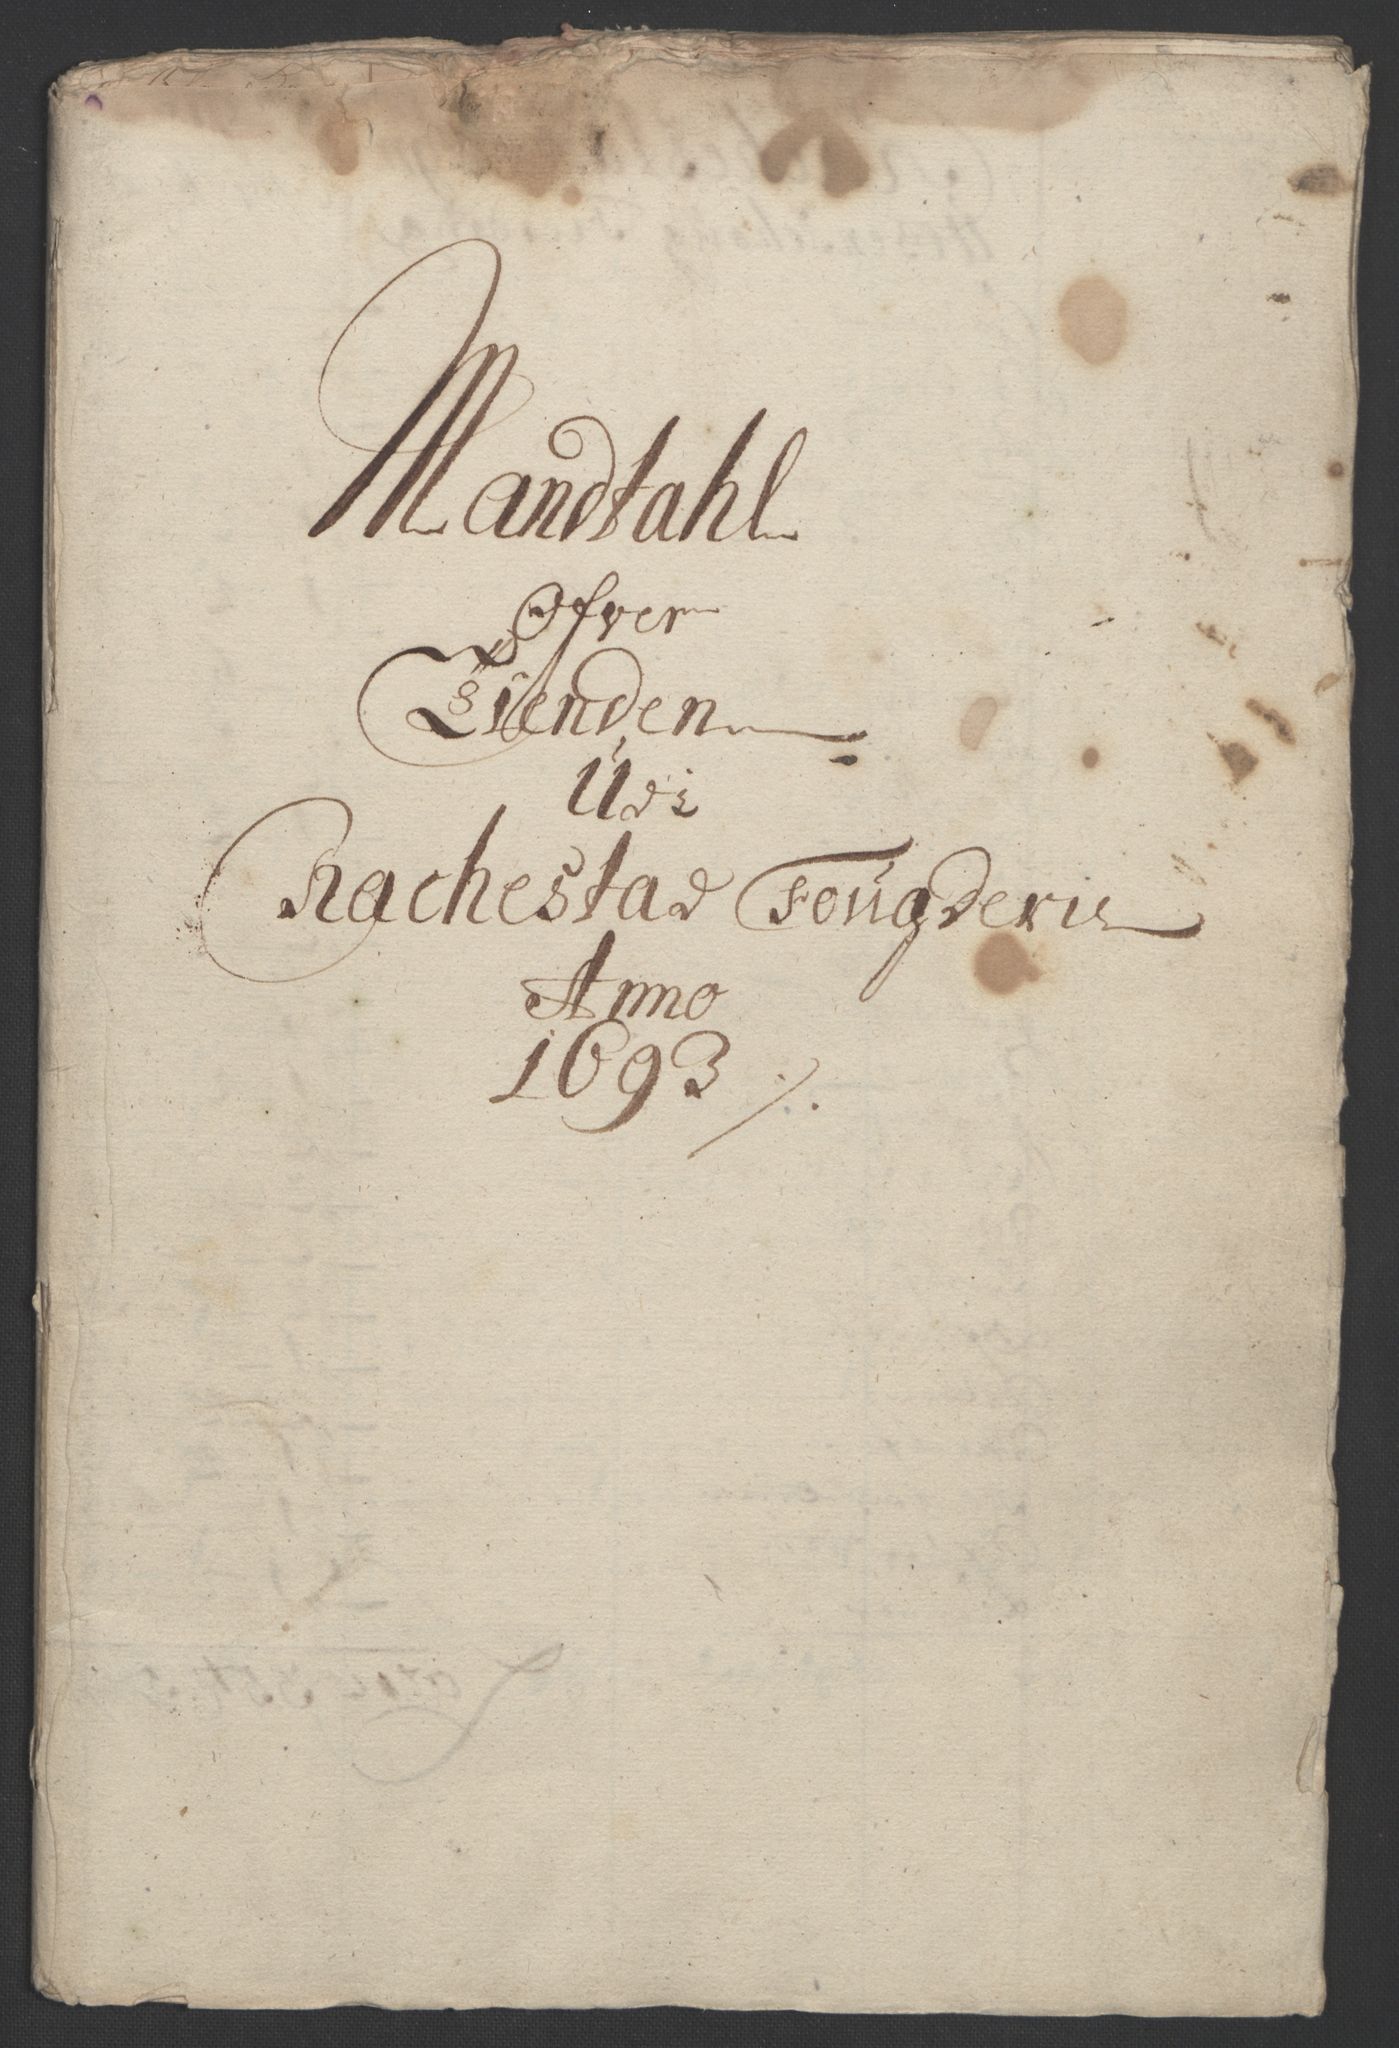 Mandtahl
Ofver
Tienden
Udi
Rachestad Fougderie
Anno
1693 ./.